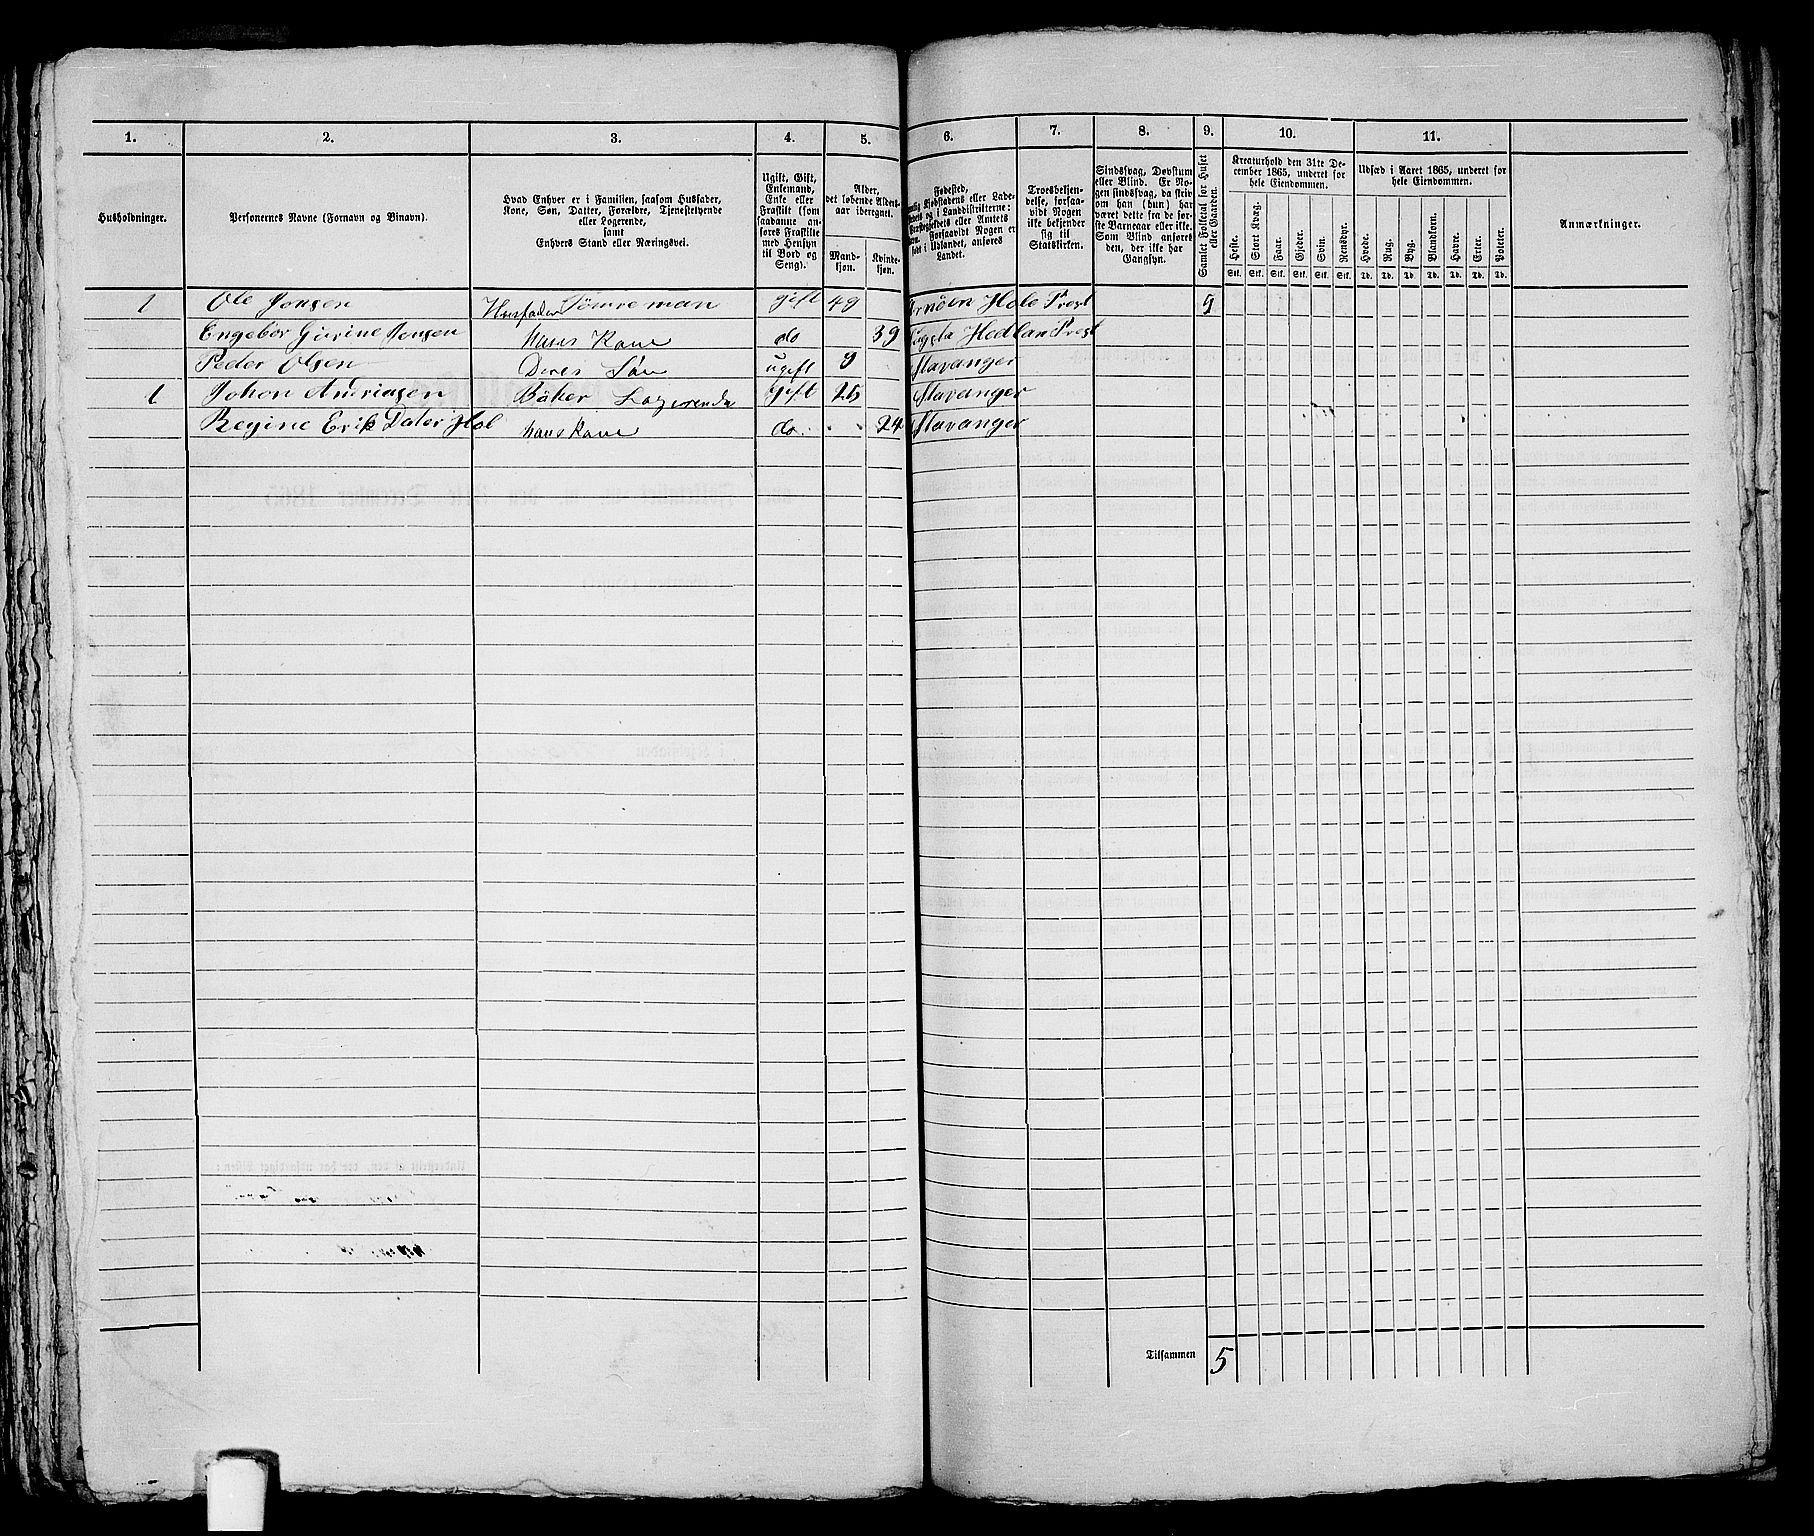 1. 2. 3. 4. 5. 6. 7. 8. 9. 10. 11.
Husholdninger.
Personernes Navne (Fornavn og Binavn).
Hvad Enhver er i Familien, saasom Husfader,
Kone, Søn, Datter, Forældre, Tjenestetyende
eller Logerende,
samt
Enhvers Stand eller Næringsvei.
Ugift, Gift,
Enkemand,
Enke eller
Fraskilt (som
saadanne an-
føres Fraskilte
med Hensyn
til Bord og
Seng).
Alder,
det løbende Alders-
aar iberegnet.
Mand-
kjøn.
Kvinde-
kjøn.
Fødested,
Kjøbstadens eller Lade-
og i Landdistrikterne:
eller Amtets
Forsaavidt Nogen er
født i Udlandet, anføres
Landet.
Troesbekjen-
delse, forsaa-
vidt Nogen
ikke bekjender
sig til
Statskirken.
Sindssvag, Døvstum
eller Blind. Er No-
gen sindssvag, da skriv
om han (hun) har
været dette fra de før-
ste Barneaar eller ikke.
Som Blind anføres
den, der ikke har
Gangsyn.
Samlet Folketal for Huset
eller Gaarden.
Kreaturhold den 31te De-
cember 1865, underet for
hele Eiendommen.
Heste. Stort Kvæg. Faar. Gjeder. Svin. Rensdyr.
Stk. Stk. Stk. Stk. Stk. Stk.
Udsæd i Aaret 1865, underet for
hele Eiendommen.
Hvede. Rug. Byg. Blandkorn. Havre. Erter. Poteter.
Td. Td. Td. Td. Td. Td. Td.
Anmærkninger.
1 Ole Jensen Husfader Tømreman gift 49 Hole Prest 9
Engebør Gurine Jensen hans Kone do 39 Hedlan Prest
Peder Olsen Deres Søn ugift 9 Stavanger
1 Johan Andriasen Bøker Logerende gift 25 Stavanger
Regine Erik Dater Hol hans kone do. 24 Stavanger
Tilsammen 5